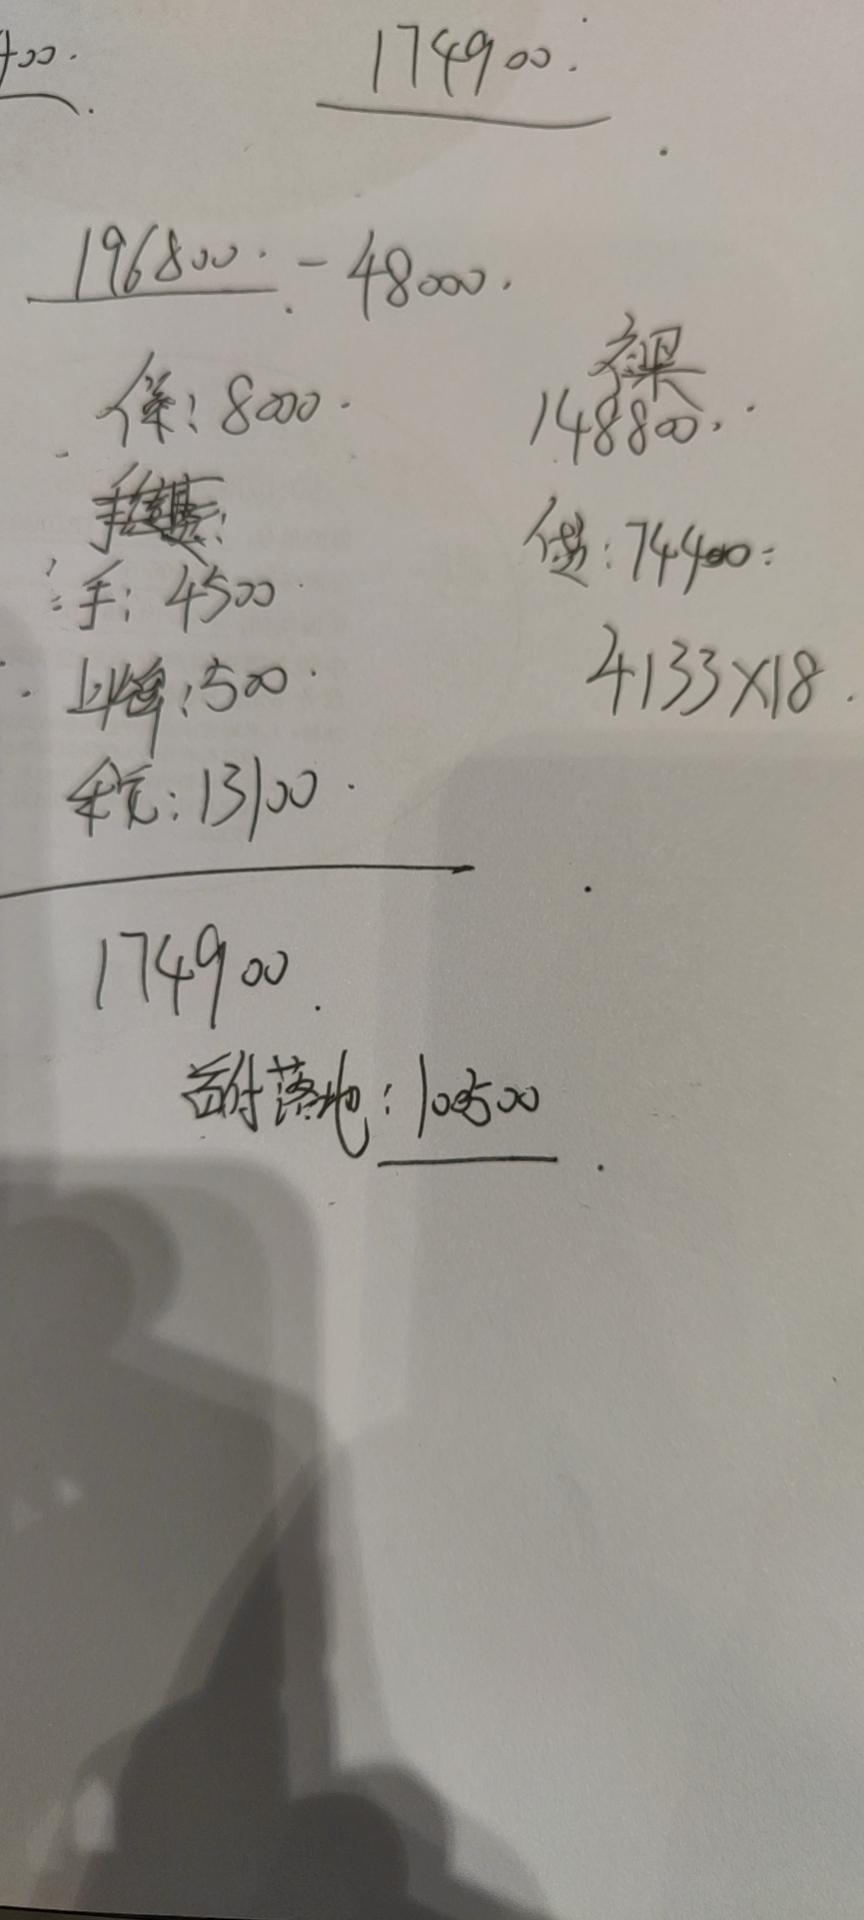 400.
174900.
196800. - 48000.
保: 8000.
裸
148800.
手续费:
手: 4500
贷: 74400:
上牌: 500.
4133×18.
税: 13100.
174900.
首付落地: 100500